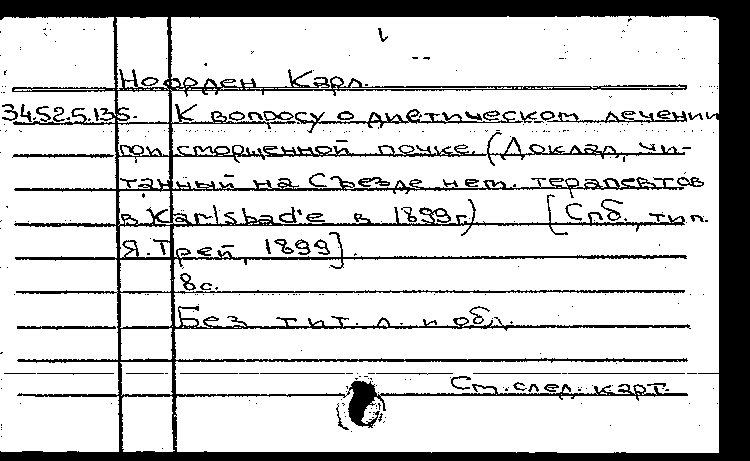 Ноорден, Карл.
34.52.5.135. К вопросу о диетическом лечении
при сморщенной почке. (Доклад, чи-
танный на Съезде нем. терапевтов
в Karlsbad'e в 1899г.) [Спб., тип.
Я. Трей, 1899].
8с.
Без тит. л. и обл.
См. след. карт.